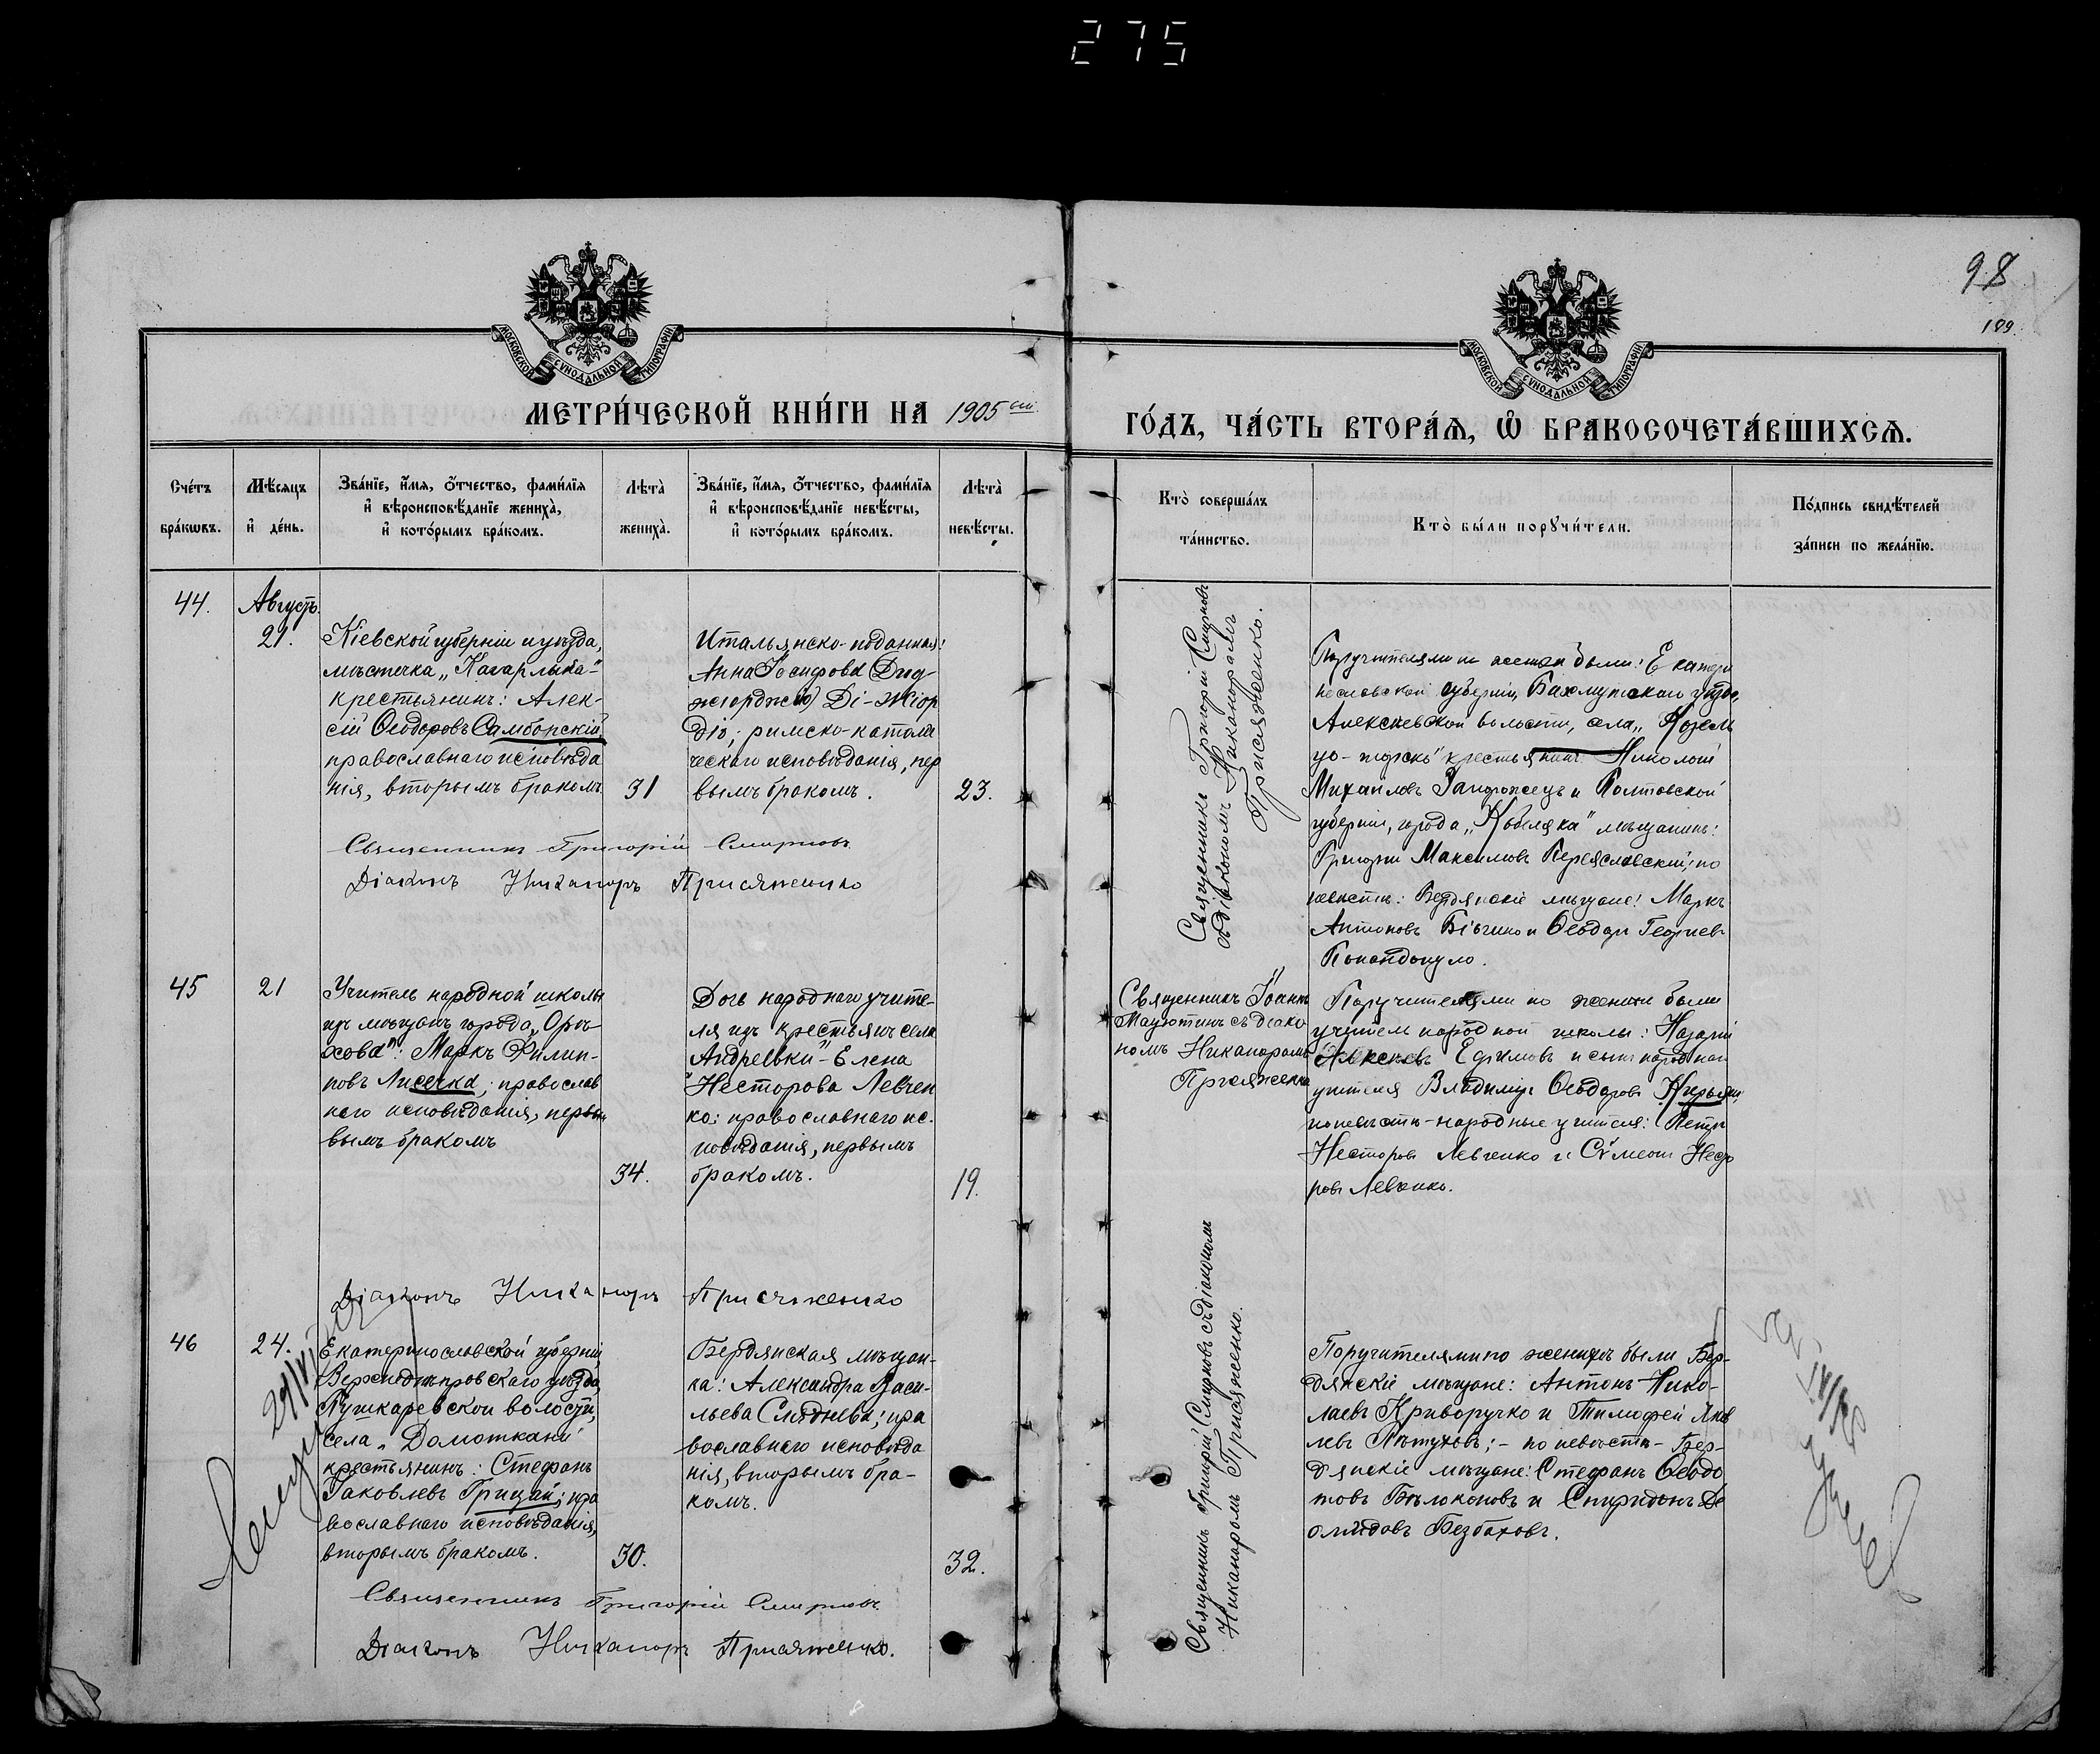 275
98
189
МОСКОВСКОЙ СУНОДАЛЬНОЙ ТИПОГРАФІИ
МОСКОВСКОЙ СУНОДАЛЬНОЙ ТИПОГРАФІИ
МЕТРИ́ЧЕСКОЙ КНИ́ГИ НА 1905
ГО́ДЪ, ЧА́СТЬ ВТОРА́Ѧ, Ѽ БРАКОСОЧЕТА́ВШИХСѦ.
Сче́тъ бра́кѡвъ.
Мѣ́сяцъ и҆ де́нь.
Зва́нїе, и҆́мя, ѻ҆́тчество, фами́лїя
и҆ вѣроисповѣ́данїе жениха̀,
и҆ кото́рымъ бра́комъ.
Лѣта̀ жениха̀.
Зва́нїе, и҆́мя, ѻ҆́тчество, фами́лїя
и҆ вѣроисповѣ́данїе невѣ́сты,
и҆ кото́рымъ бра́комъ.
Лѣта̀ невѣ́сты.
Кто̀ соверша́лъ
та́инство.
Кто̀ бы́ли порꙋчи́тели.
По́дпись свидѣ́телей
за́писи по жела́нїю.
44.
Августъ.
21.
Кіевской губерніи и уѣзда,
мѣстечка „Кагарлыка"
крестьянинъ: Алек-
сій Ѳеодоровъ Самборскій,
православнаго исповѣда
нія, вторымъ бракомъ
31
Итальянско-поданная:
Анна Іосифова
Ді-Жіор
діо; римско-католи
ческаго исповѣданія, пер
вымъ бракомъ.
23.
Священникъ Григорій Смирновъ
съ діакономъ Никаноромъ
Присяженко.
Поручителями по женихѣ были: Екатери
нославской губерніи, Бахмутскаго уѣзда,
Алексѣевской волости, села
крестьянинъ Николай
Михайловъ Запорожецъ и Полтавской
губерніи, города „Кобеляка" мѣщанинъ:
Григорій Максимовъ Переяславскій; по
невѣстѣ: Бердянскіе мѣщане: Маркъ
Антоновъ и Ѳеодоръ Георгіев
Папандопуло.
Священникъ Григорій Смирновъ
Діаконъ Никаноръ Присяженко
45
21
Учитель народной школы
изъ мѣщанъ города „Орѣ-
хова": Маркъ Филип-
повъ Лисечка; православ
наго исповѣданія, первы
вымъ бракомъ
34.
Дочь народнаго учите-
ля изъ крестьянъ села
„Андреевки" - Елена
Несторова Левчен
ко; православнаго ис-
повѣданія, первымъ
бракомъ.
19.
Священникъ Іоаннъ
Маютинъ съ діако
номъ Никаноромъ
Присяженко
Поручителями по женихѣ были
учитель народной школы: Назарій
Алексѣевъ Ефимовъ и сынъ народнаго
учителя Владиміръ Ѳеодоровъ
по невѣстѣ - народные учителя: Петръ
Несторовъ Левченко и Сѵмеонъ Несто
ровъ Левченко.
Діаконъ Никаноръ Присяженко
46
24.
Екатеринославской губерніи,
Верхнеднѣпровскаго уѣзда,
Пушкаревской волости,
села „Домоткани"
крестьянинъ: Стефанъ
Іаковлевъ Грицай; пра
вославнаго исповѣданія,
вторымъ бракомъ.
30.
Бердянская мѣщан-
ка: Александра Васи-
льева Слѣднева; пра
вославнаго исповѣда
нія, вторымъ бра-
комъ.
32.
Священникъ Григорій Смирновъ съ діакономъ
Никаноромъ Присяженко.
Поручителями по женихѣ были Бер-
дянскіе мѣщане: Антонъ Нико-
лаевъ Криворучко и Тимофей Яков
левъ Пѣтуховъ; - по невѣстѣ - Бер-
дянскіе мѣщане: Стефанъ Ѳеодо
товъ Бѣлоконовъ и Спиридонъ Де
омидовъ Безбаховъ.
Священникъ Григорій Смирновъ
Діаконъ Никаноръ Присяженко.